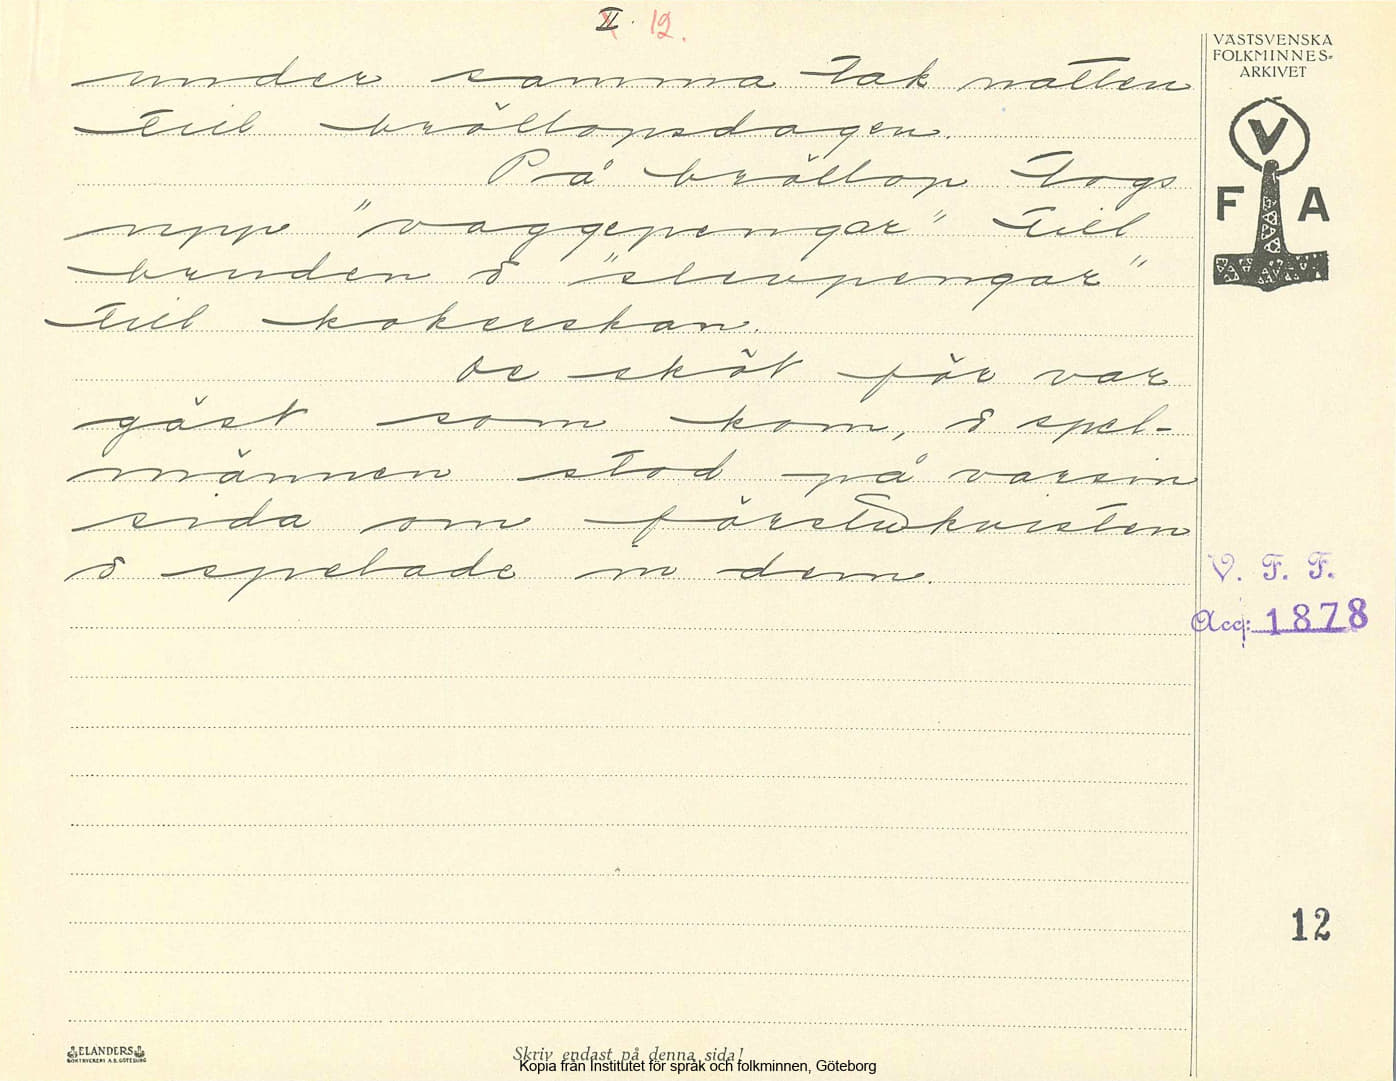 II. 12.
under samma tak natten
till bröllopsdagen.
På bröllop togs
upp "vaggepengar" till
bruden & "slevpengar"
till kokerskan.
De sköt för var
gäst som kom, & spel-
männen stod på varsin
sida om förstukvisten
& spelade in dem.
VÄSTSVENSKA
FOLKMINNES-
ARKIVET
V
F A
V. F. F.
Acc: 1878
12
ELANDERS
BOKTRYCKERI A.B. GÖTEBORG
Skriv endast på denna sida!
Kopia från Institutet för språk och folkminnen, Göteborg